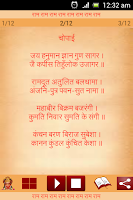 12:32 am
राम राम राम राम राम राम राम राम
1/12
2/12
3/12
चोपाई
जय हनुमान ज्ञान गुण सागर ।
जै कपीस तिहुँलोक उजागर ॥
रामदूत अतुलित बलधामा ।
अंजनि-पुत्र पवन सुत नामा ॥
महाबीर बिक्रम बजरंगी ।
कुमति निवार सुमति के संगी ॥
कंचन बरण बिराज सुबेशा ।
कानन कुंडल कुंचित केशा ॥
राम राम राम राम राम राम राम राम